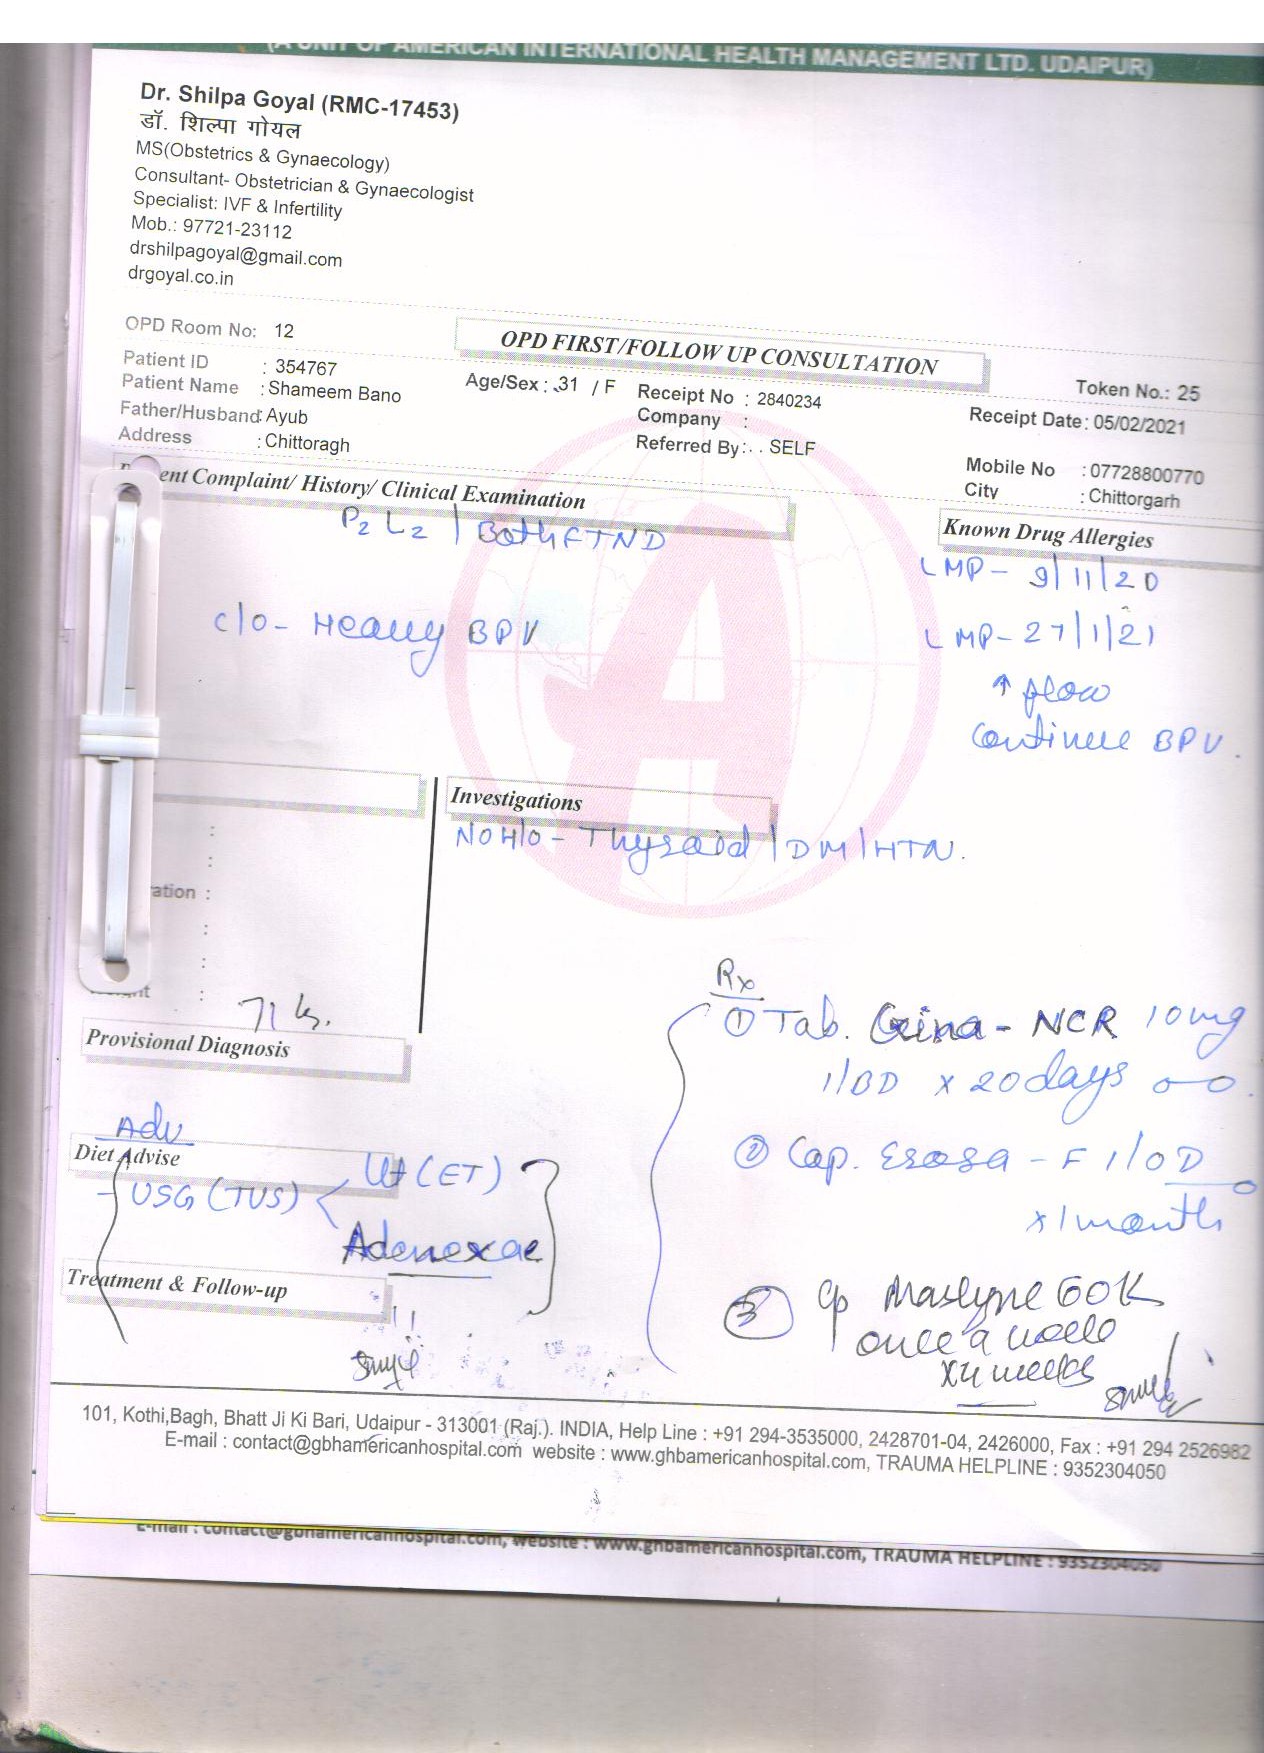 (A UNIT OF AMERICAN INTERNATIONAL HEALTH MANAGEMENT LTD. UDAIPUR)
Dr. Shilpa Goyal (RMC-17453)
डॉ. शिल्पा गोयल
MS(Obstetrics & Gynaecology)
Consultant- Obstetrician & Gynaecologist
Specialist: IVF & Infertility
Mob.: 97721-23112
drshilpagoyal@gmail.com
drgoyal.co.in
OPD Room No: 12
OPD FIRST/FOLLOW UP CONSULTATION
Token No.: 25
Patient ID : 354767
Patient Name : Shameem Bano
Age/Sex : 31 / F
Receipt No : 2840234
Receipt Date : 05/02/2021
Father/Husband: Ayub
Company :
Address : Chittoragh
Referred By: . . SELF
Mobile No : 07728800770
City : Chittorgarh
ent Complaint/ History/ Clinical Examination
Known Drug Allergies
P2 L2 | Both FTND
LMP- 9/11/20
c/o- Heavy BPV
LMP- 27/1/21
↑ flow
continue BPV.
Investigations
NO H/O- Thyroid / DM / HTN.
ation :
71 kg.
Provisional Diagnosis
Rx
① Tab. - NCR 10mg
1/BD x 20 days o-o.
Adv
Diet Advise
- USG (TVS) < Ut (ET)
Adenexae
② Cap. - F 1/OD
x 1 month
Treatment & Follow-up
③ Cp 60K
once a week
x 4 weeks
101, Kothi,Bagh, Bhatt Ji Ki Bari, Udaipur - 313001 (Raj.). INDIA, Help Line : +91 294-3535000, 2428701-04, 2426000, Fax : +91 294 2526982
E-mail : contact@gbhamericanhospital.com website : www.ghbamericanhospital.com, TRAUMA HELPLINE : 9352304050
E-mail : contact@gbhamericanhospital.com, website : www.ghbamericanhospital.com, TRAUMA HELPLINE : 9352304050